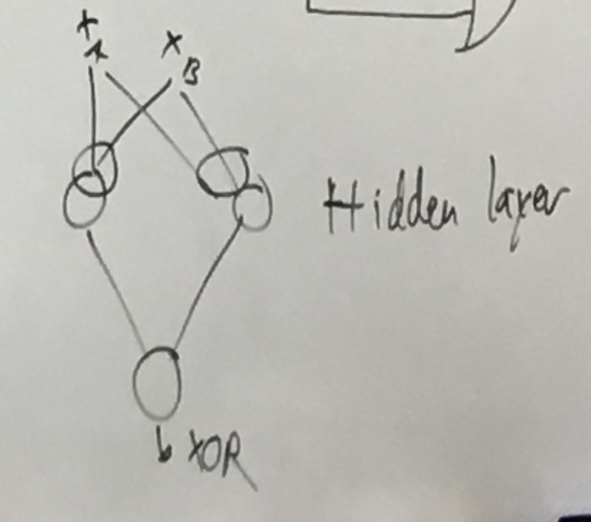 x A x B
Hidden layer
b XOR